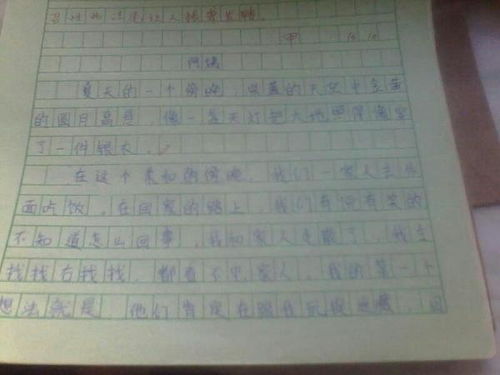 甲
夏天的一个傍晚,蔚蓝的天空中金黄
的圆月高悬,像一盏天灯把大地照得像穿
了一件银衣。
在这个柔和的傍晚,我们一家人去外
面吃饭,在回家的路上,我们有说有笑的
不知道怎么回事,我和家人走散了,我左
找找右找找,都看不见家人,我的第一个
想法就是 他们肯定在跟我玩捉迷藏,